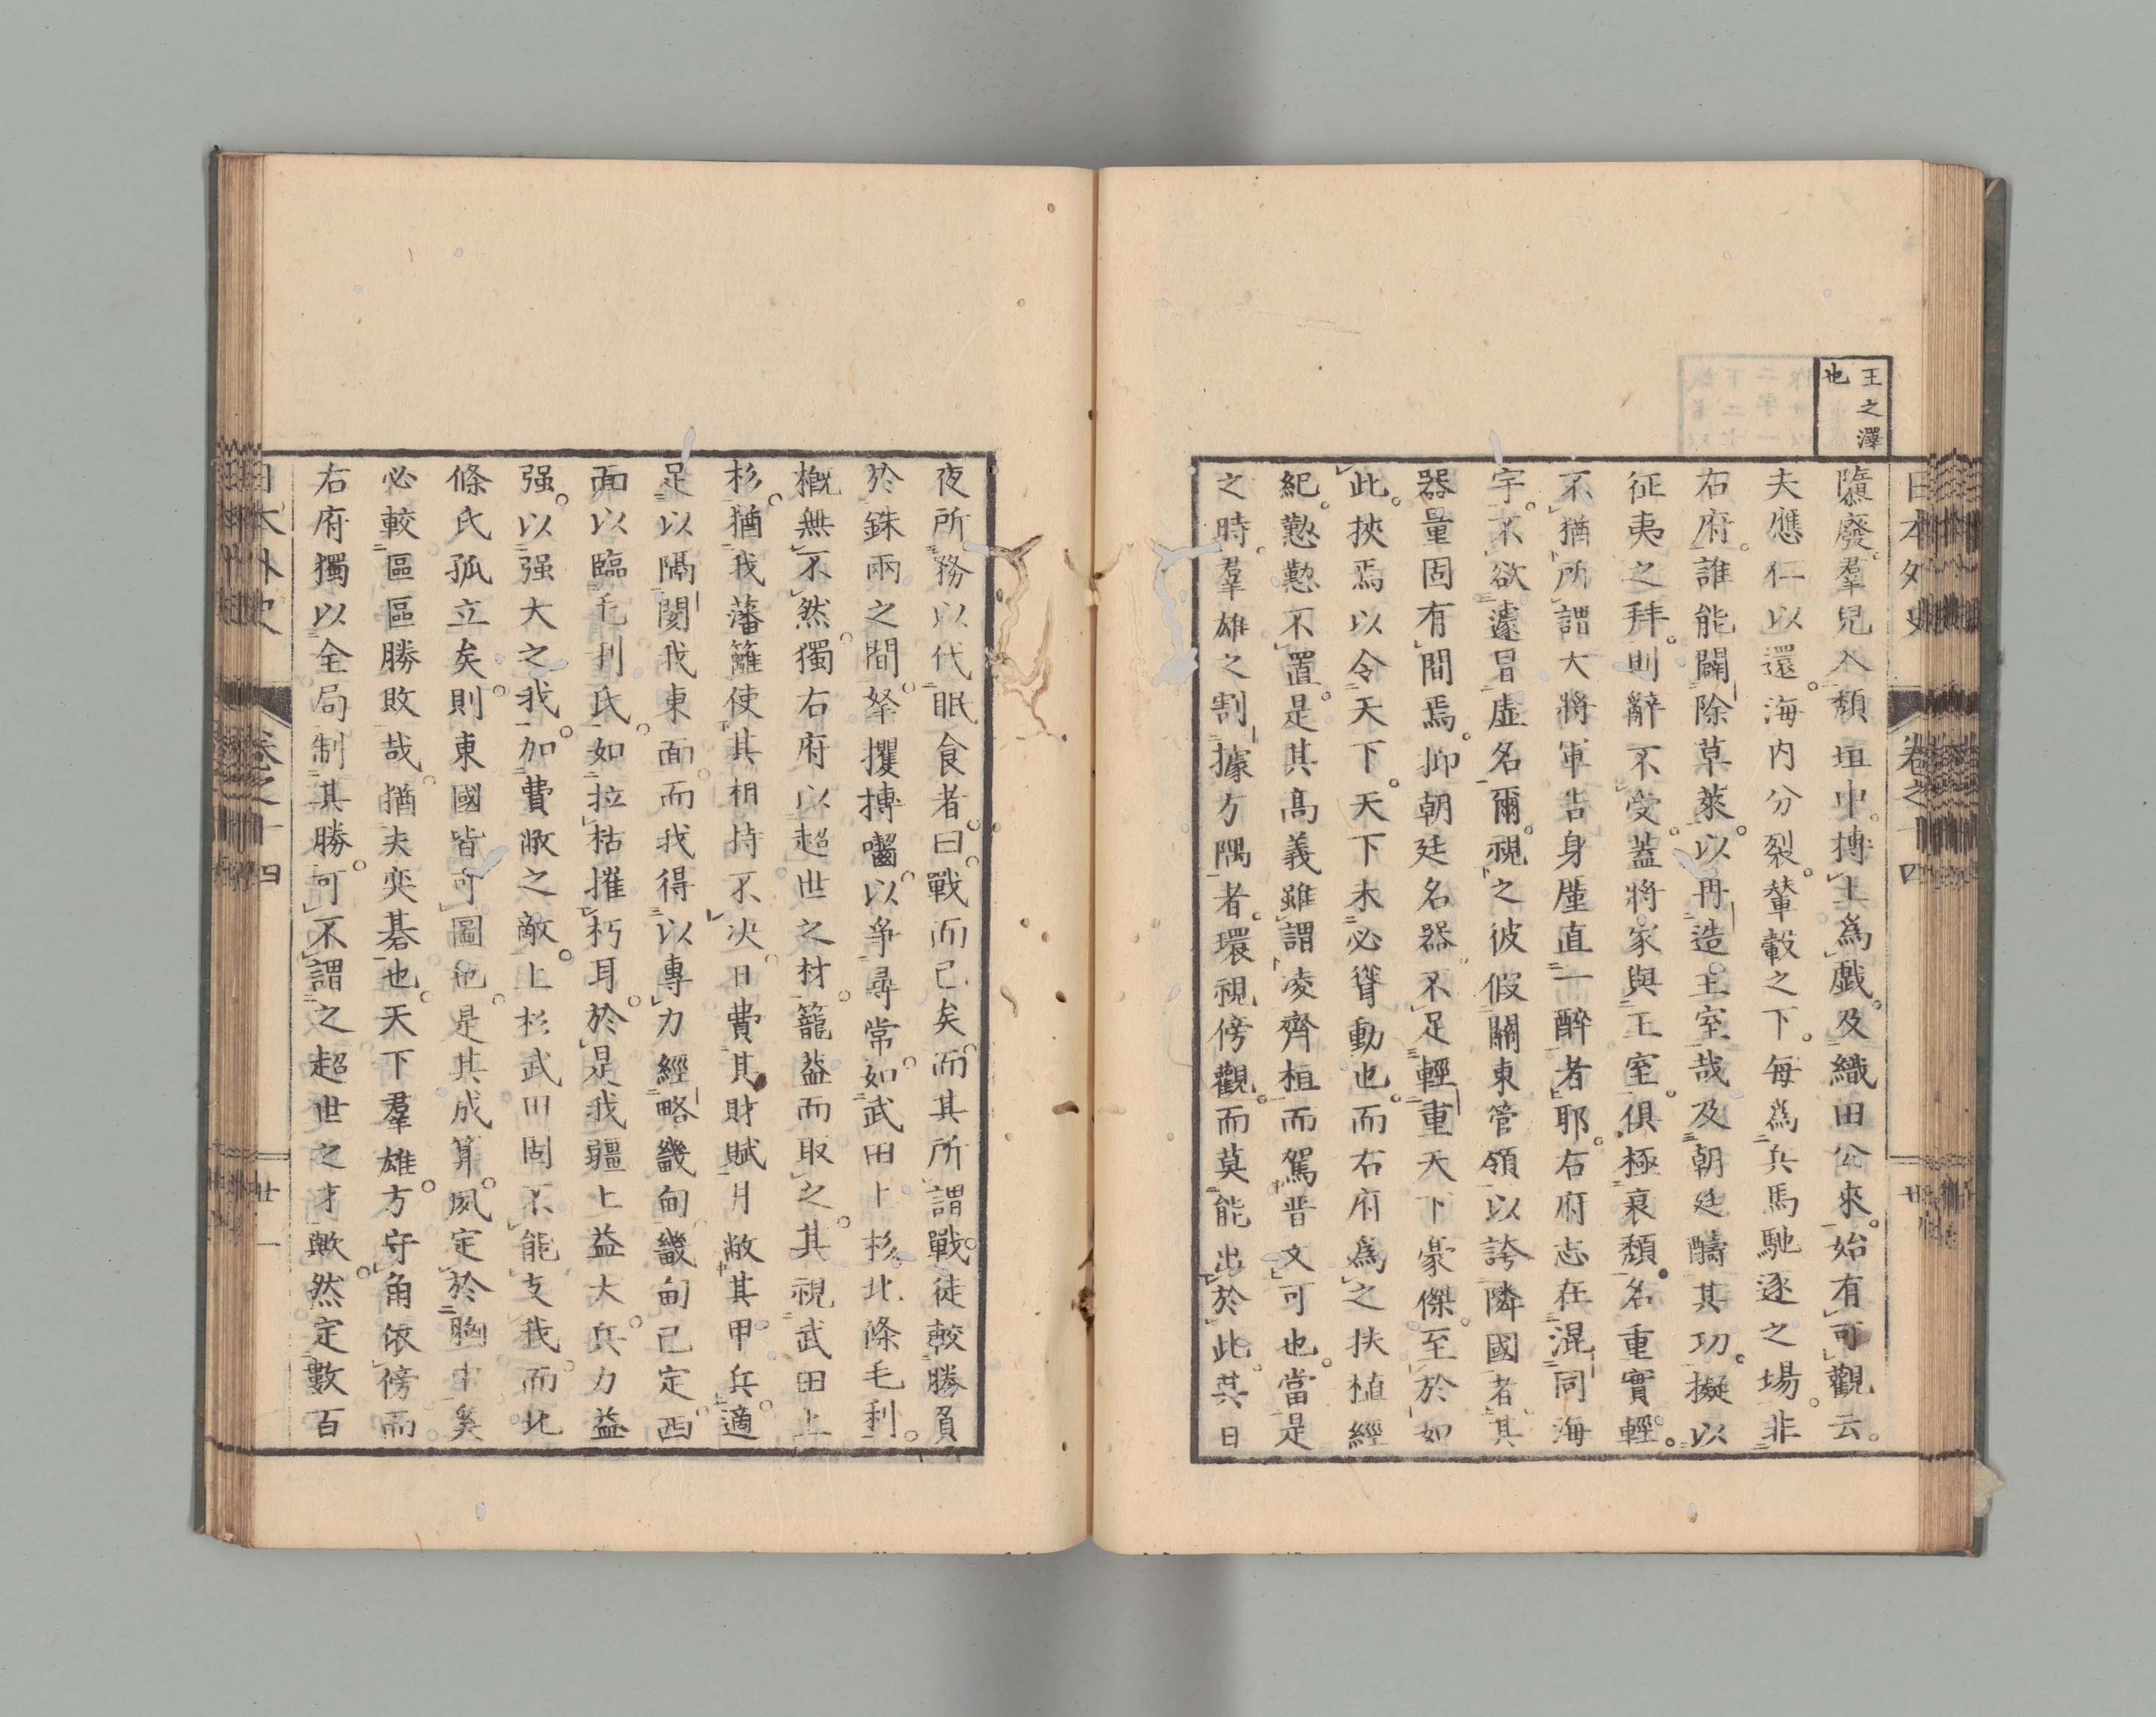 王之澤
也
日本外史 卷之十四 廿
隳廢。羣兒入頽垣中。摶土爲戲。及織田公來。始有可觀云。
夫應仁以還。海内分裂。輦轂之下。每爲兵馬馳逐之場。非
右府。誰能闢除草萊。以再造王室哉。及朝廷酬其功。擬以
征夷之拜。則辭不受。蓋將家與王室。俱極衰頽。名重實輕。
不猶所謂大將軍告身廑直一醉者耶。右府志在混同海
宇。不欲遽冒虛名爾。視之彼假關東管領以誇隣國者。其
器量固有間焉。抑朝廷名器。不足輕重天下豪傑。至於如
此。挾焉以令天下。天下未必聳動也。而右府爲之扶植經
紀。懃懃不置。是其高義。雖謂凌齊桓而駕晋文可也。當是
之時。羣雄之割據方隅者。環視傍觀。而莫能出於此。其日
夜所務以代眠食者。曰。戰而已矣。而其所謂戰。徒較勝負
於銖兩之間。拏攫摶囓。以爭尋常。如武田上杉北條毛利。
槪無不然。獨右府以超世之材。籠蓋而取之。其視武田上
杉。猶我藩籬。使其相持不决。日費其財賦。月敝其甲兵。適
足以隔閡我東面。而我得以專力經略畿甸。畿甸已定。西
面以臨毛利氏。如拉枯摧朽耳。於是我疆土益大。兵力益
强。以强大之我。加費敝之敵。上杉武田固不能支我。而北
條氏孤立矣。則東國皆可圖也。是其成算。夙定於胸中矣。
必較區區勝敗哉。猶夫奕碁也。天下羣雄。方守角依傍。而
右府獨以全局制其勝。可不謂之超世之才歟。然定數百
日本外史 卷之十四 廿一